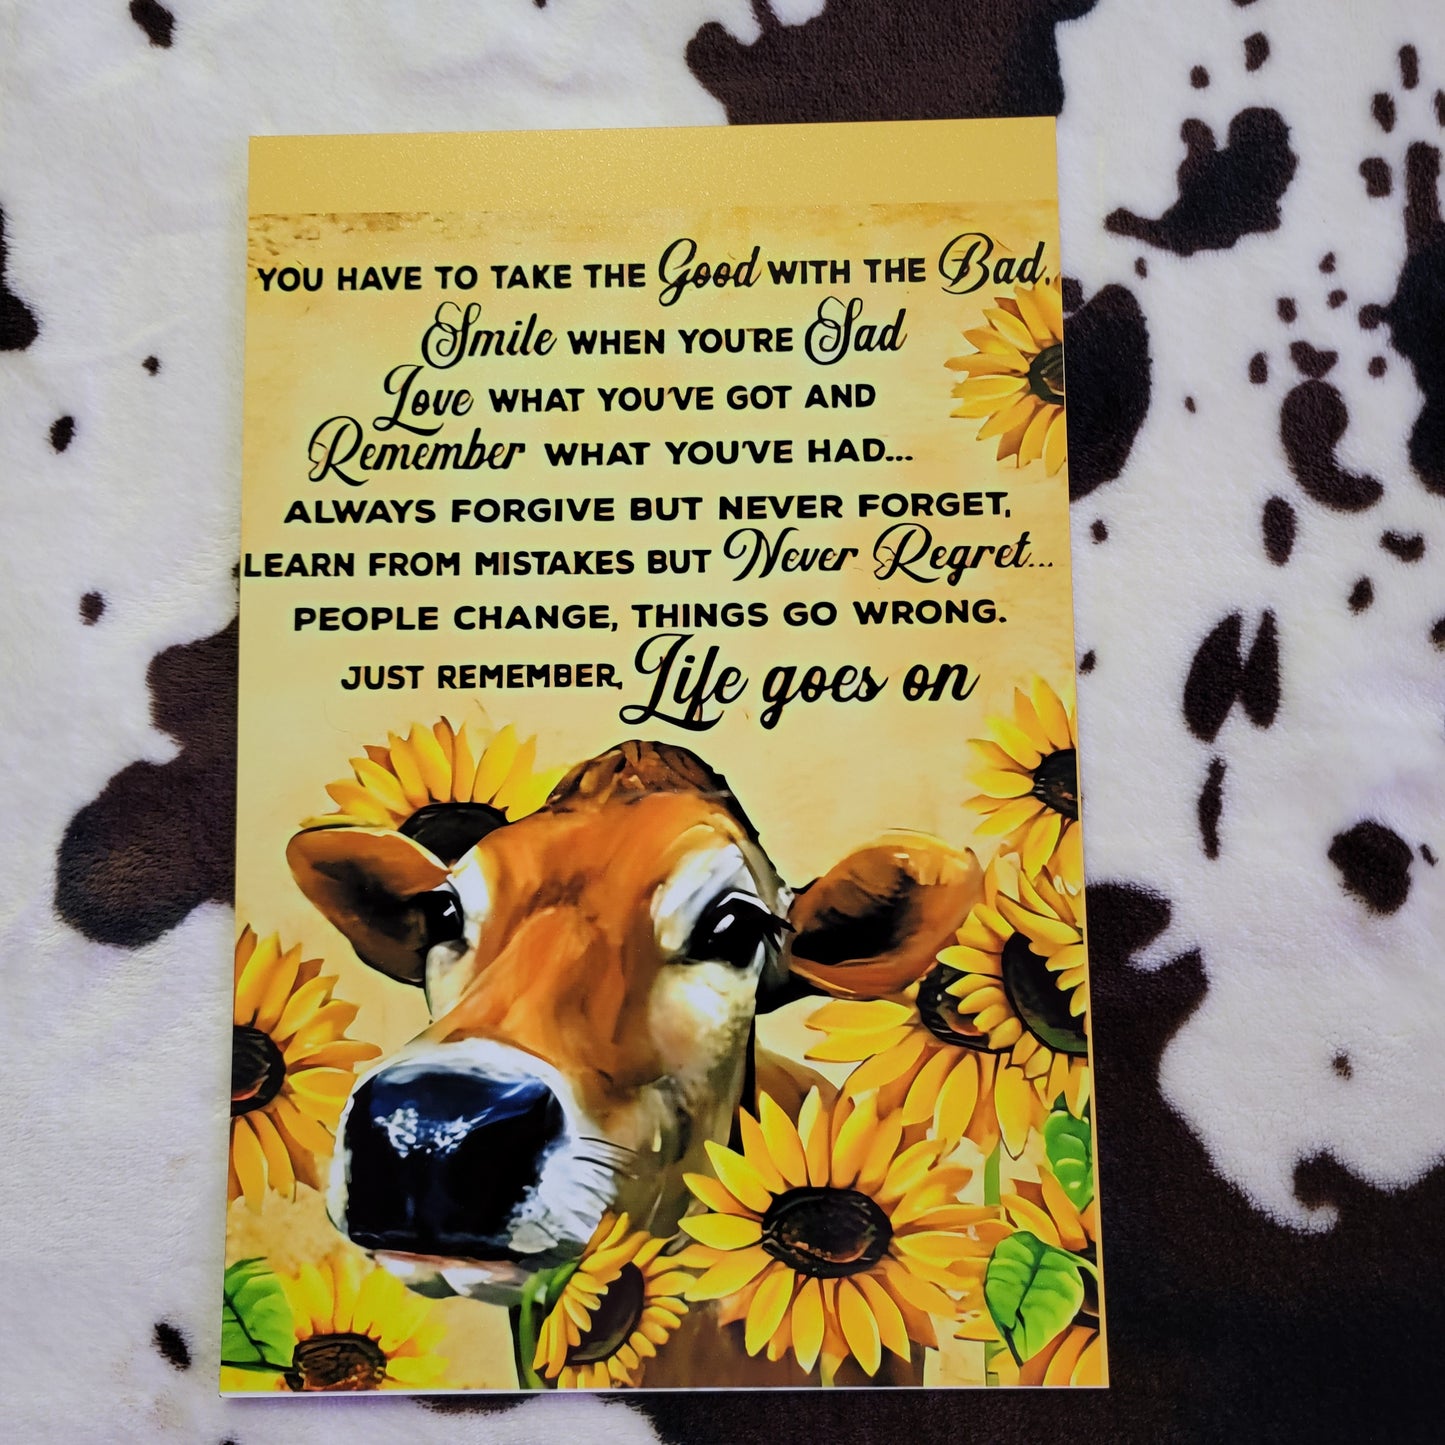 YOU HAVE TO TAKE THE Good WITH THE Bad.
Smile WHEN YOU'RE Sad
Love WHAT YOU'VE GOT AND
Remember WHAT YOU'VE HAD...
ALWAYS FORGIVE BUT NEVER FORGET,
LEARN FROM MISTAKES BUT Never Regret...
PEOPLE CHANGE, THINGS GO WRONG.
JUST REMEMBER, Life goes on